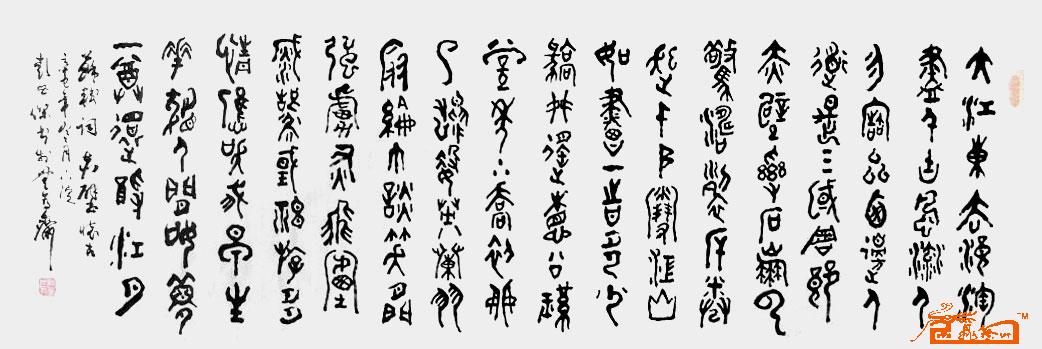 大江東去浪淘
盡千古風流人
物故壘西邊人
道是三國周郎
赤壁亂石崩雲
驚濤裂岸捲
起千堆雪江山
如畫一時多少
豪傑遙想公瑾
當年小喬初嫁
了雄姿英發羽
扇綸巾談笑間
強虜灰飛煙滅
故國神遊多
情應笑我早生
華髮人間如夢
一尊還酹江月
蘇軾詞赤壁懷古